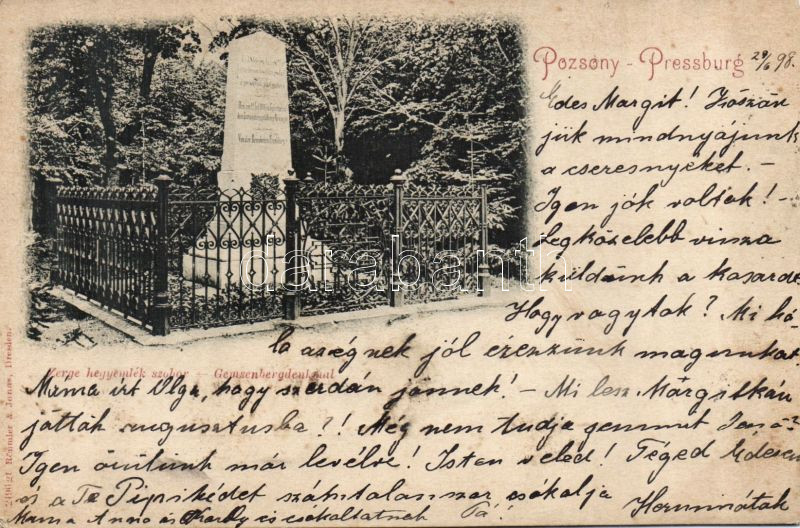 Pozsony - Pressburg 29/6 98.
Édes Margit! Köszön
jük mindnyájunk
a cseresnyéket. -
Igen jók voltak! -
Legközelebb vissza
küldünk a kosarat
Hogy vagytok? Mi há
la az égnek jól érezzük magunkat
Zerge hegyemlék szobor — Gemsenbergdenkmal
Mama írt Olga, hogy szerdán jönnek! - Mi lesz Margitkám
játtok augusztusba?! Még nem tudja
Igen örülünk már levélre! Isten veled! Téged édesen
és a Te Pipsikédet számtalanszor csókolja
Herminátok
Mama Anna és Károly is csókoltatnak Pá!
darabanth
Römmler & Jonas, Dresden